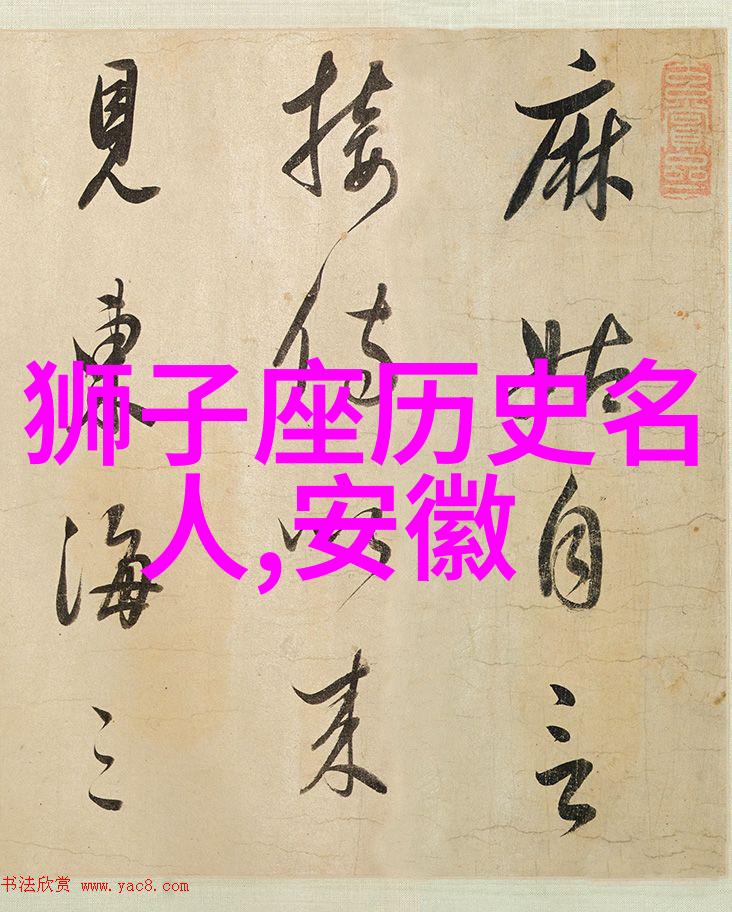 麻姑自言
接侍以来
見東海三
狮子座历史名
人,安徽
书法欣赏 www.yac8.com